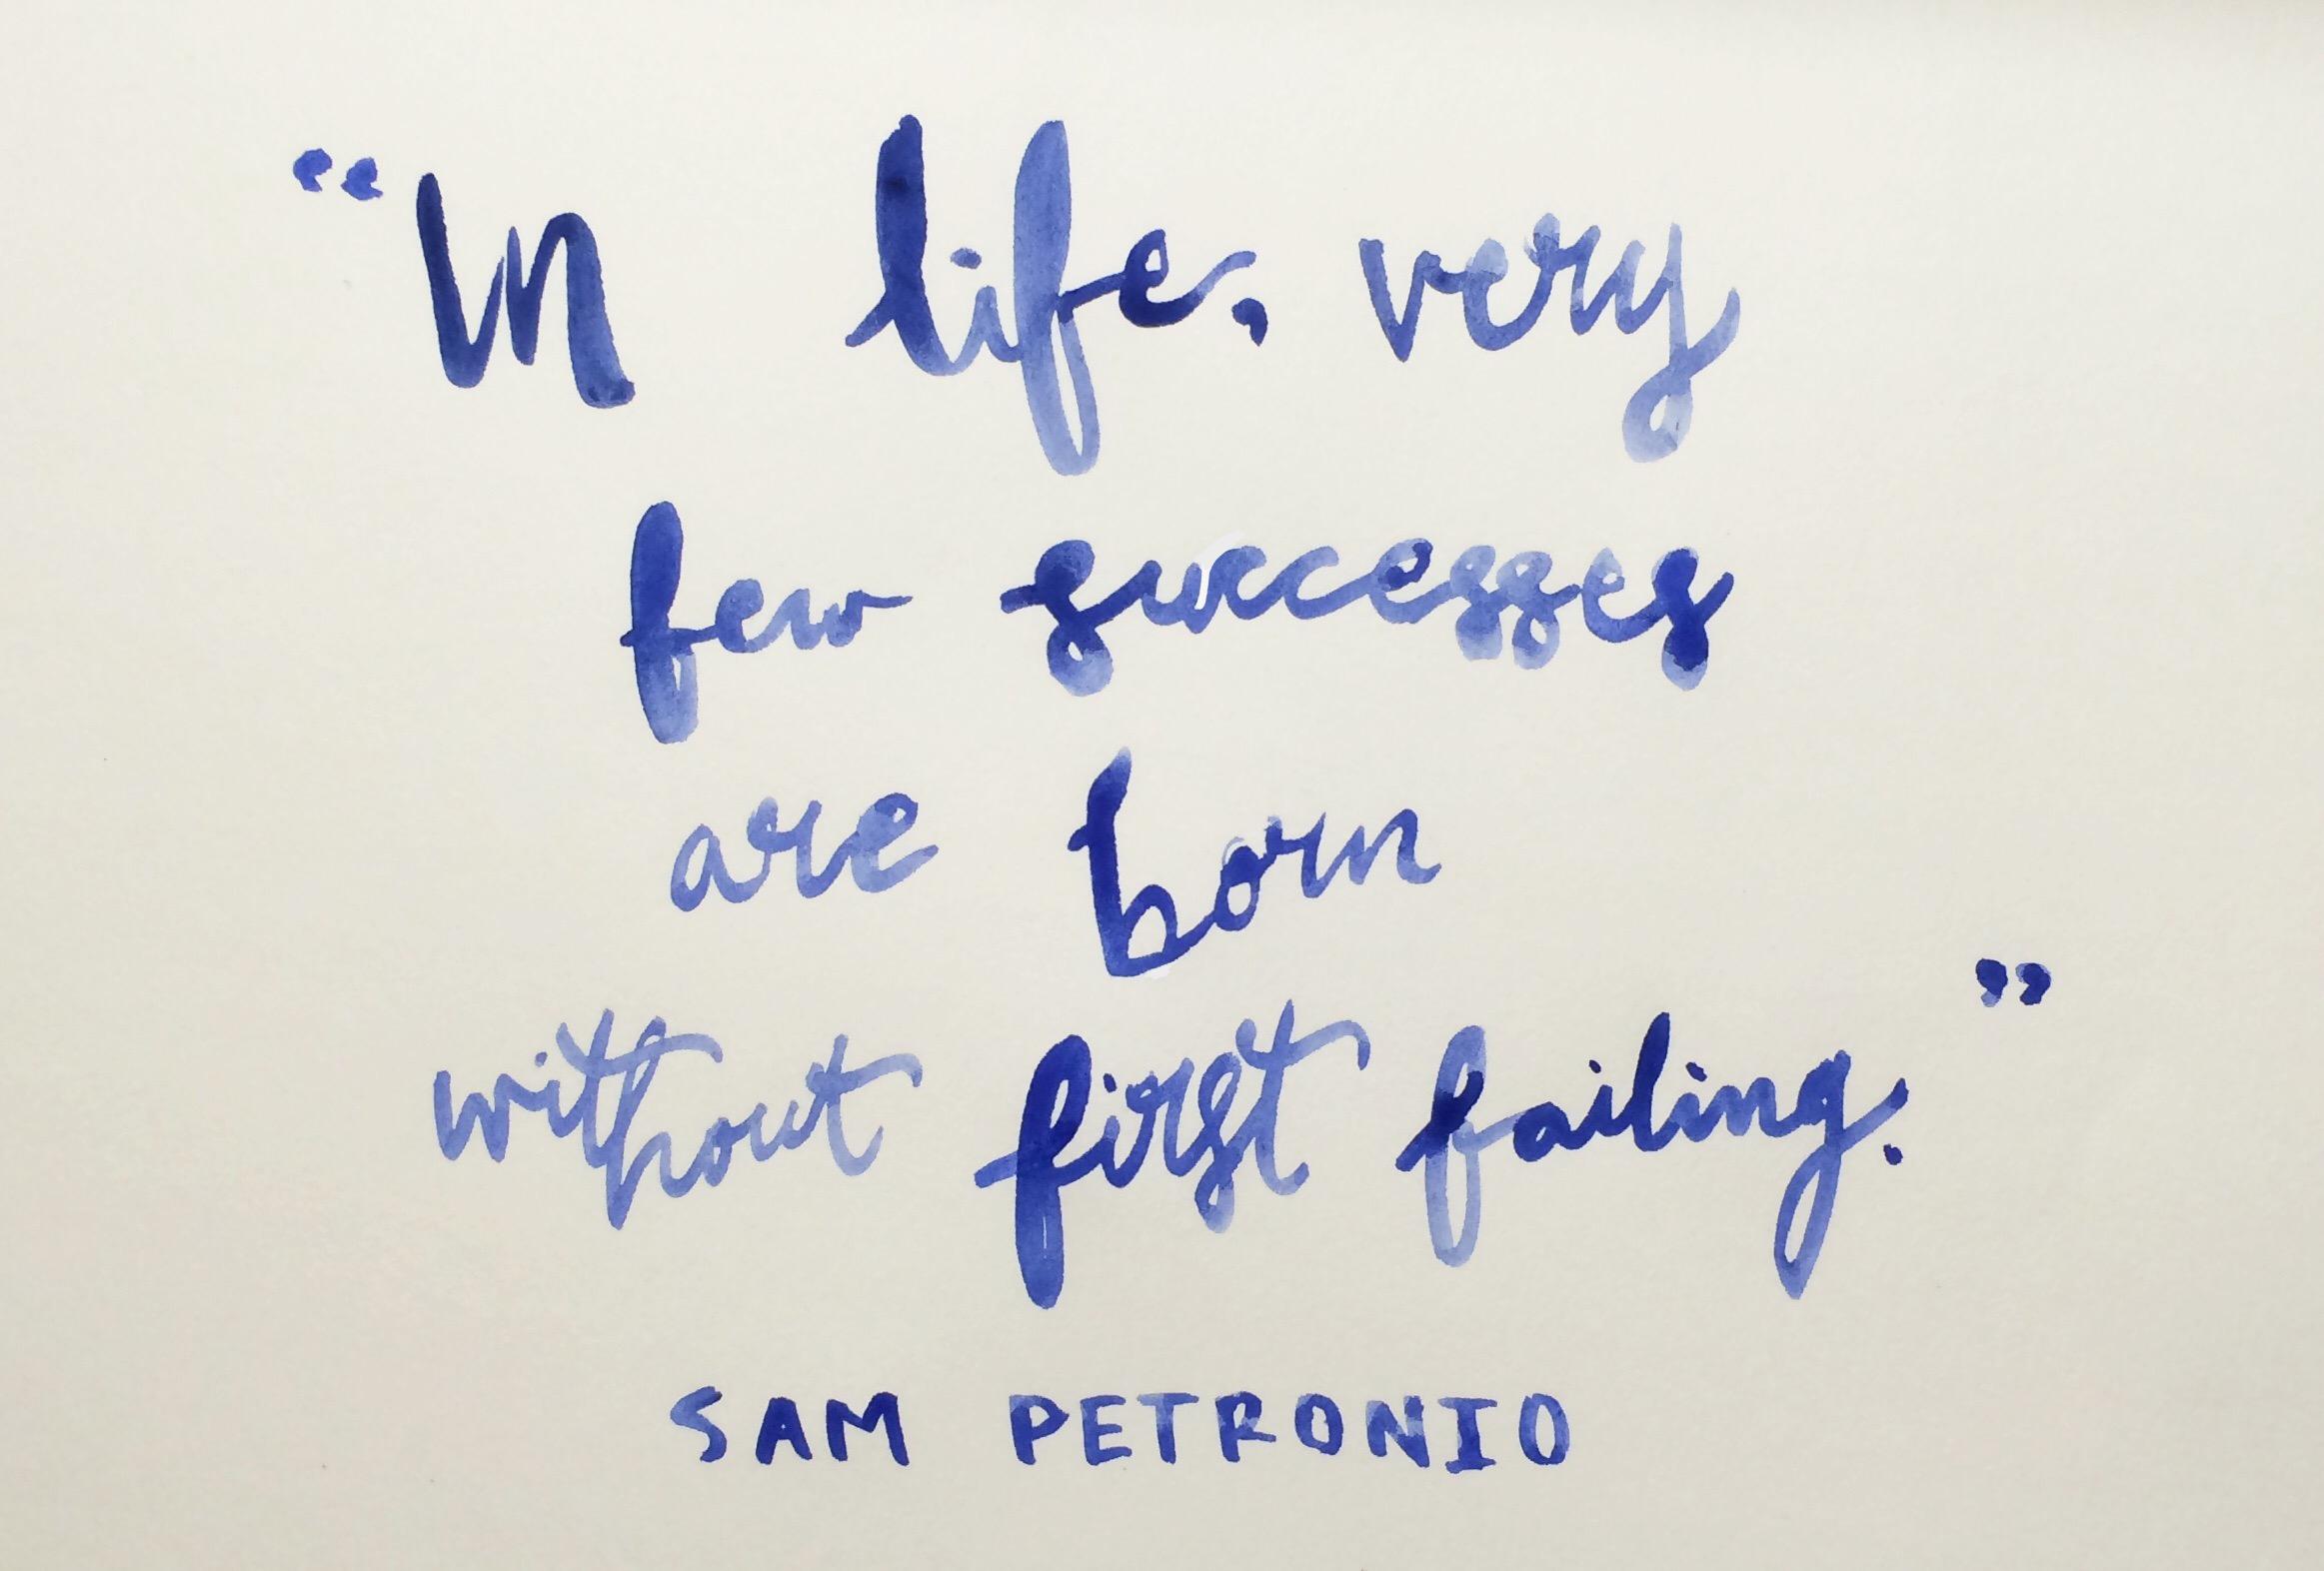 “In life, very
few successes
are born
without first failing.”
SAM PETRONIO